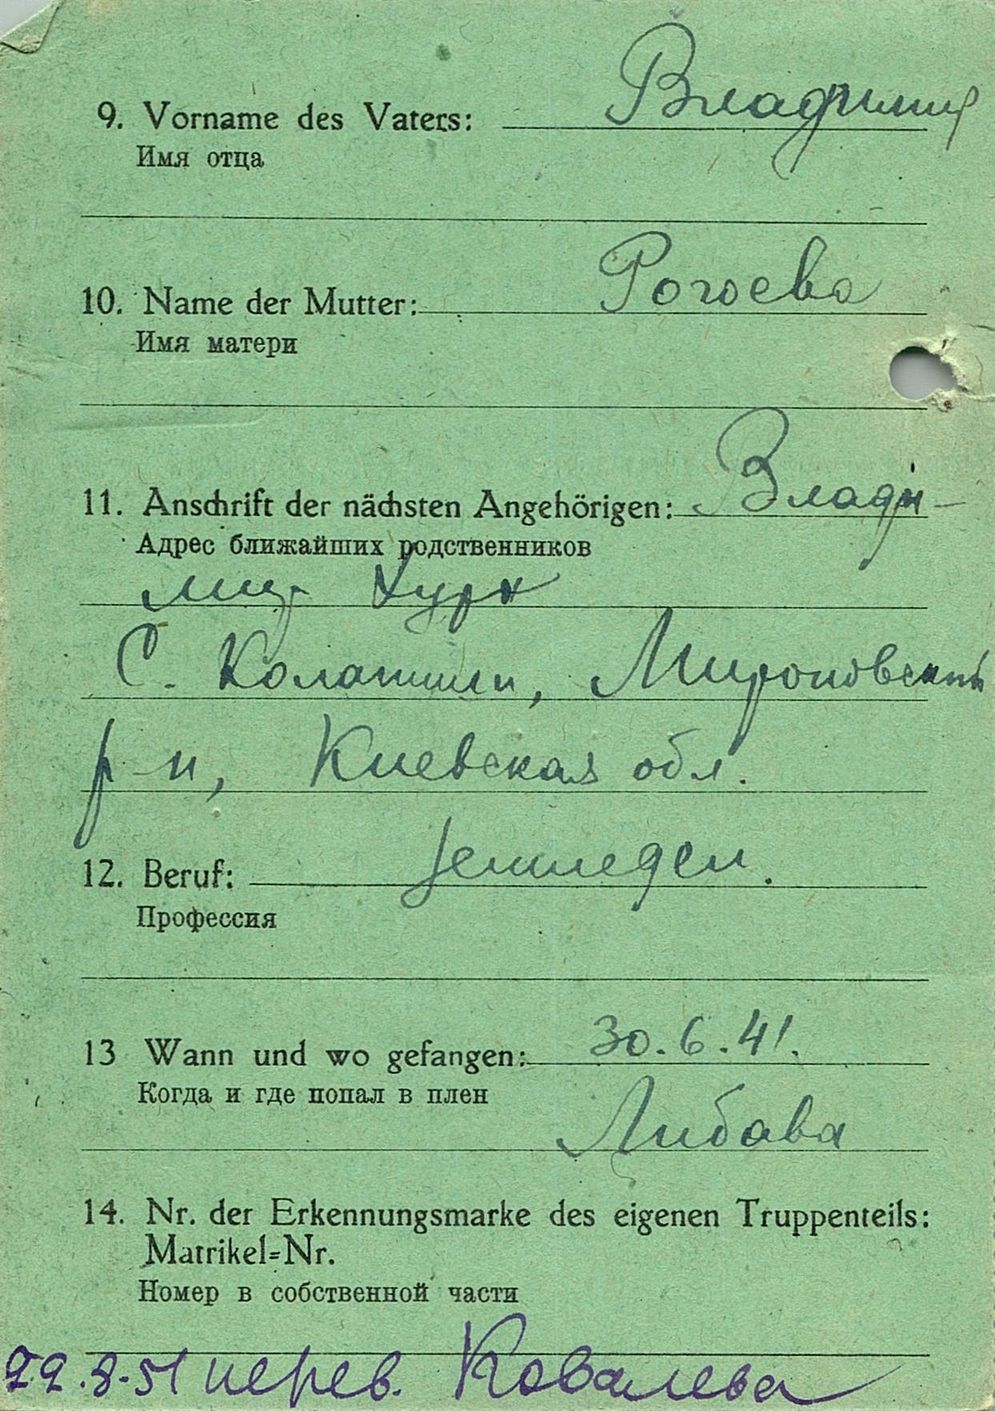 9. Vorname des Vaters: Владимир
Имя отца
10. Name der Mutter: Рогоева
Имя матери
11. Anschrift der nächsten Angehörigen: Влади-
Адрес ближайших родственников
мир
С. Мироновский
р-н, Киевская обл.
12. Beruf: земледел.
Профессия
13 Wann und wo gefangen: 30.6.41.
Когда и где попал в плен
Либава
14. Nr. der Erkennungsmarke des eigenen Truppenteils:
Matrikel-Nr.
Номер в собственной части
22.8.51 перев. Ковалева